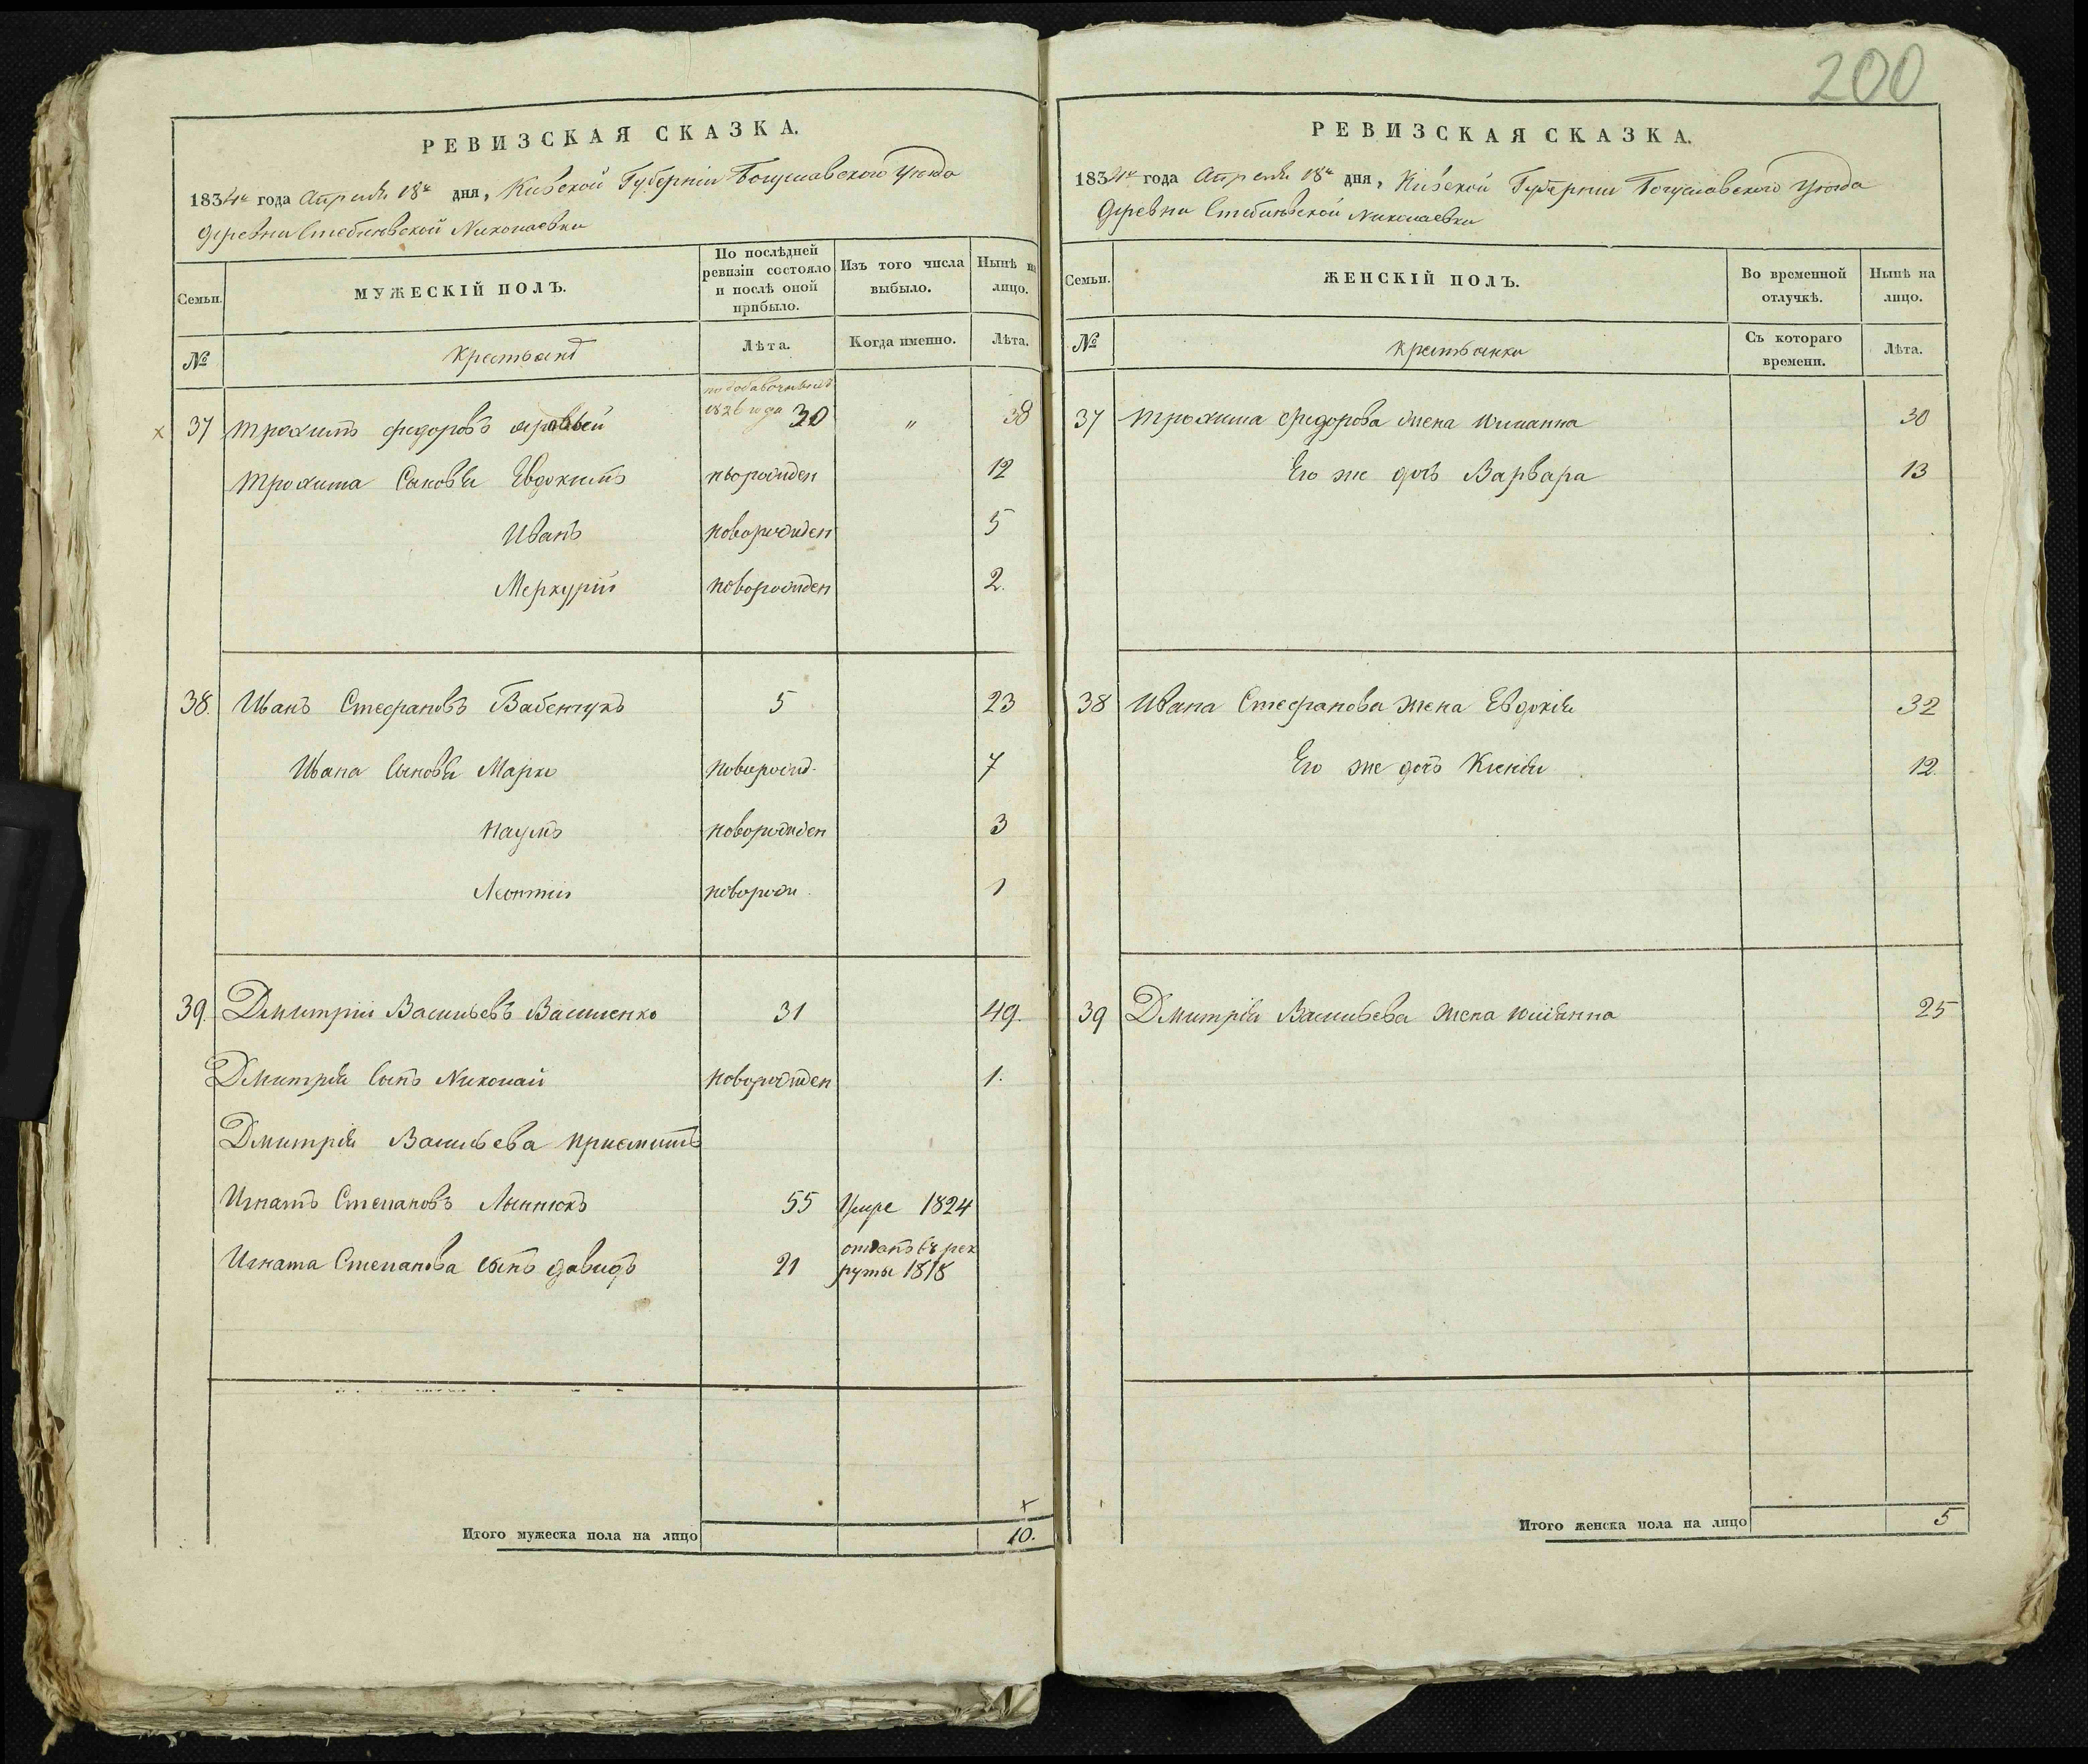 200
РЕВИЗСКАЯ СКАЗКА.
1834го года Апреля 18го дня, Кіевской Губерніи Богуславского Уезда
деревни Стебліовской Николаевки
Семьи.
МУЖЕСКІЙ ПОЛЪ.
По послѣдней ревизіи состояло и послѣ оной прибыло.
Изъ того числа выбыло.
Нынѣ на лицо.
№
Крестьянѣ
Лѣта.
Когда именно.
Лѣта.
37 Трохимъ Федоровъ 1826 года 30 " 38
Трохима Сыновья Евдокимъ новорожден 12
Иванъ новорожден 5
Меркурій новорожден 2.
38. Иванъ Стефановъ Бабенчукъ 5 23
Ивана Сыновья Марко новорожд. 7
Наумъ новорожден 3
Леонтій новорож. 1
39. Дмитрій Васильевъ Василенко 31 49.
Дмитрія Сынъ Николай новорожден 1.
Дмитрія Васильева
Игнатъ Степановъ 55 Умре 1824
Игната Степанова сынъ Давидъ 21 отданъ въ рек
руты 1818
Итого мужеска пола на лицо 10.
РЕВИЗСКАЯ СКАЗКА.
1834го года Апреля 18го дня, Кіевской Губерніи Богуславского Уезда
Деревни Стебліовской Николаевки
Семьи.
ЖЕНСКІЙ ПОЛЪ.
Во временной отлучкѣ.
Нынѣ на лицо.
№
Крестьянки
Съ котораго времени.
Лѣта.
37 Трохима Федорова жена Юлианна 30
Его же дочь Варвара 13
38 Ивана Стефанова жена Евдокія 32
Его же дочь Ксенія 12.
39 Дмитрія Васильева жена Юліянна 25
Итого женска пола на лицо 5